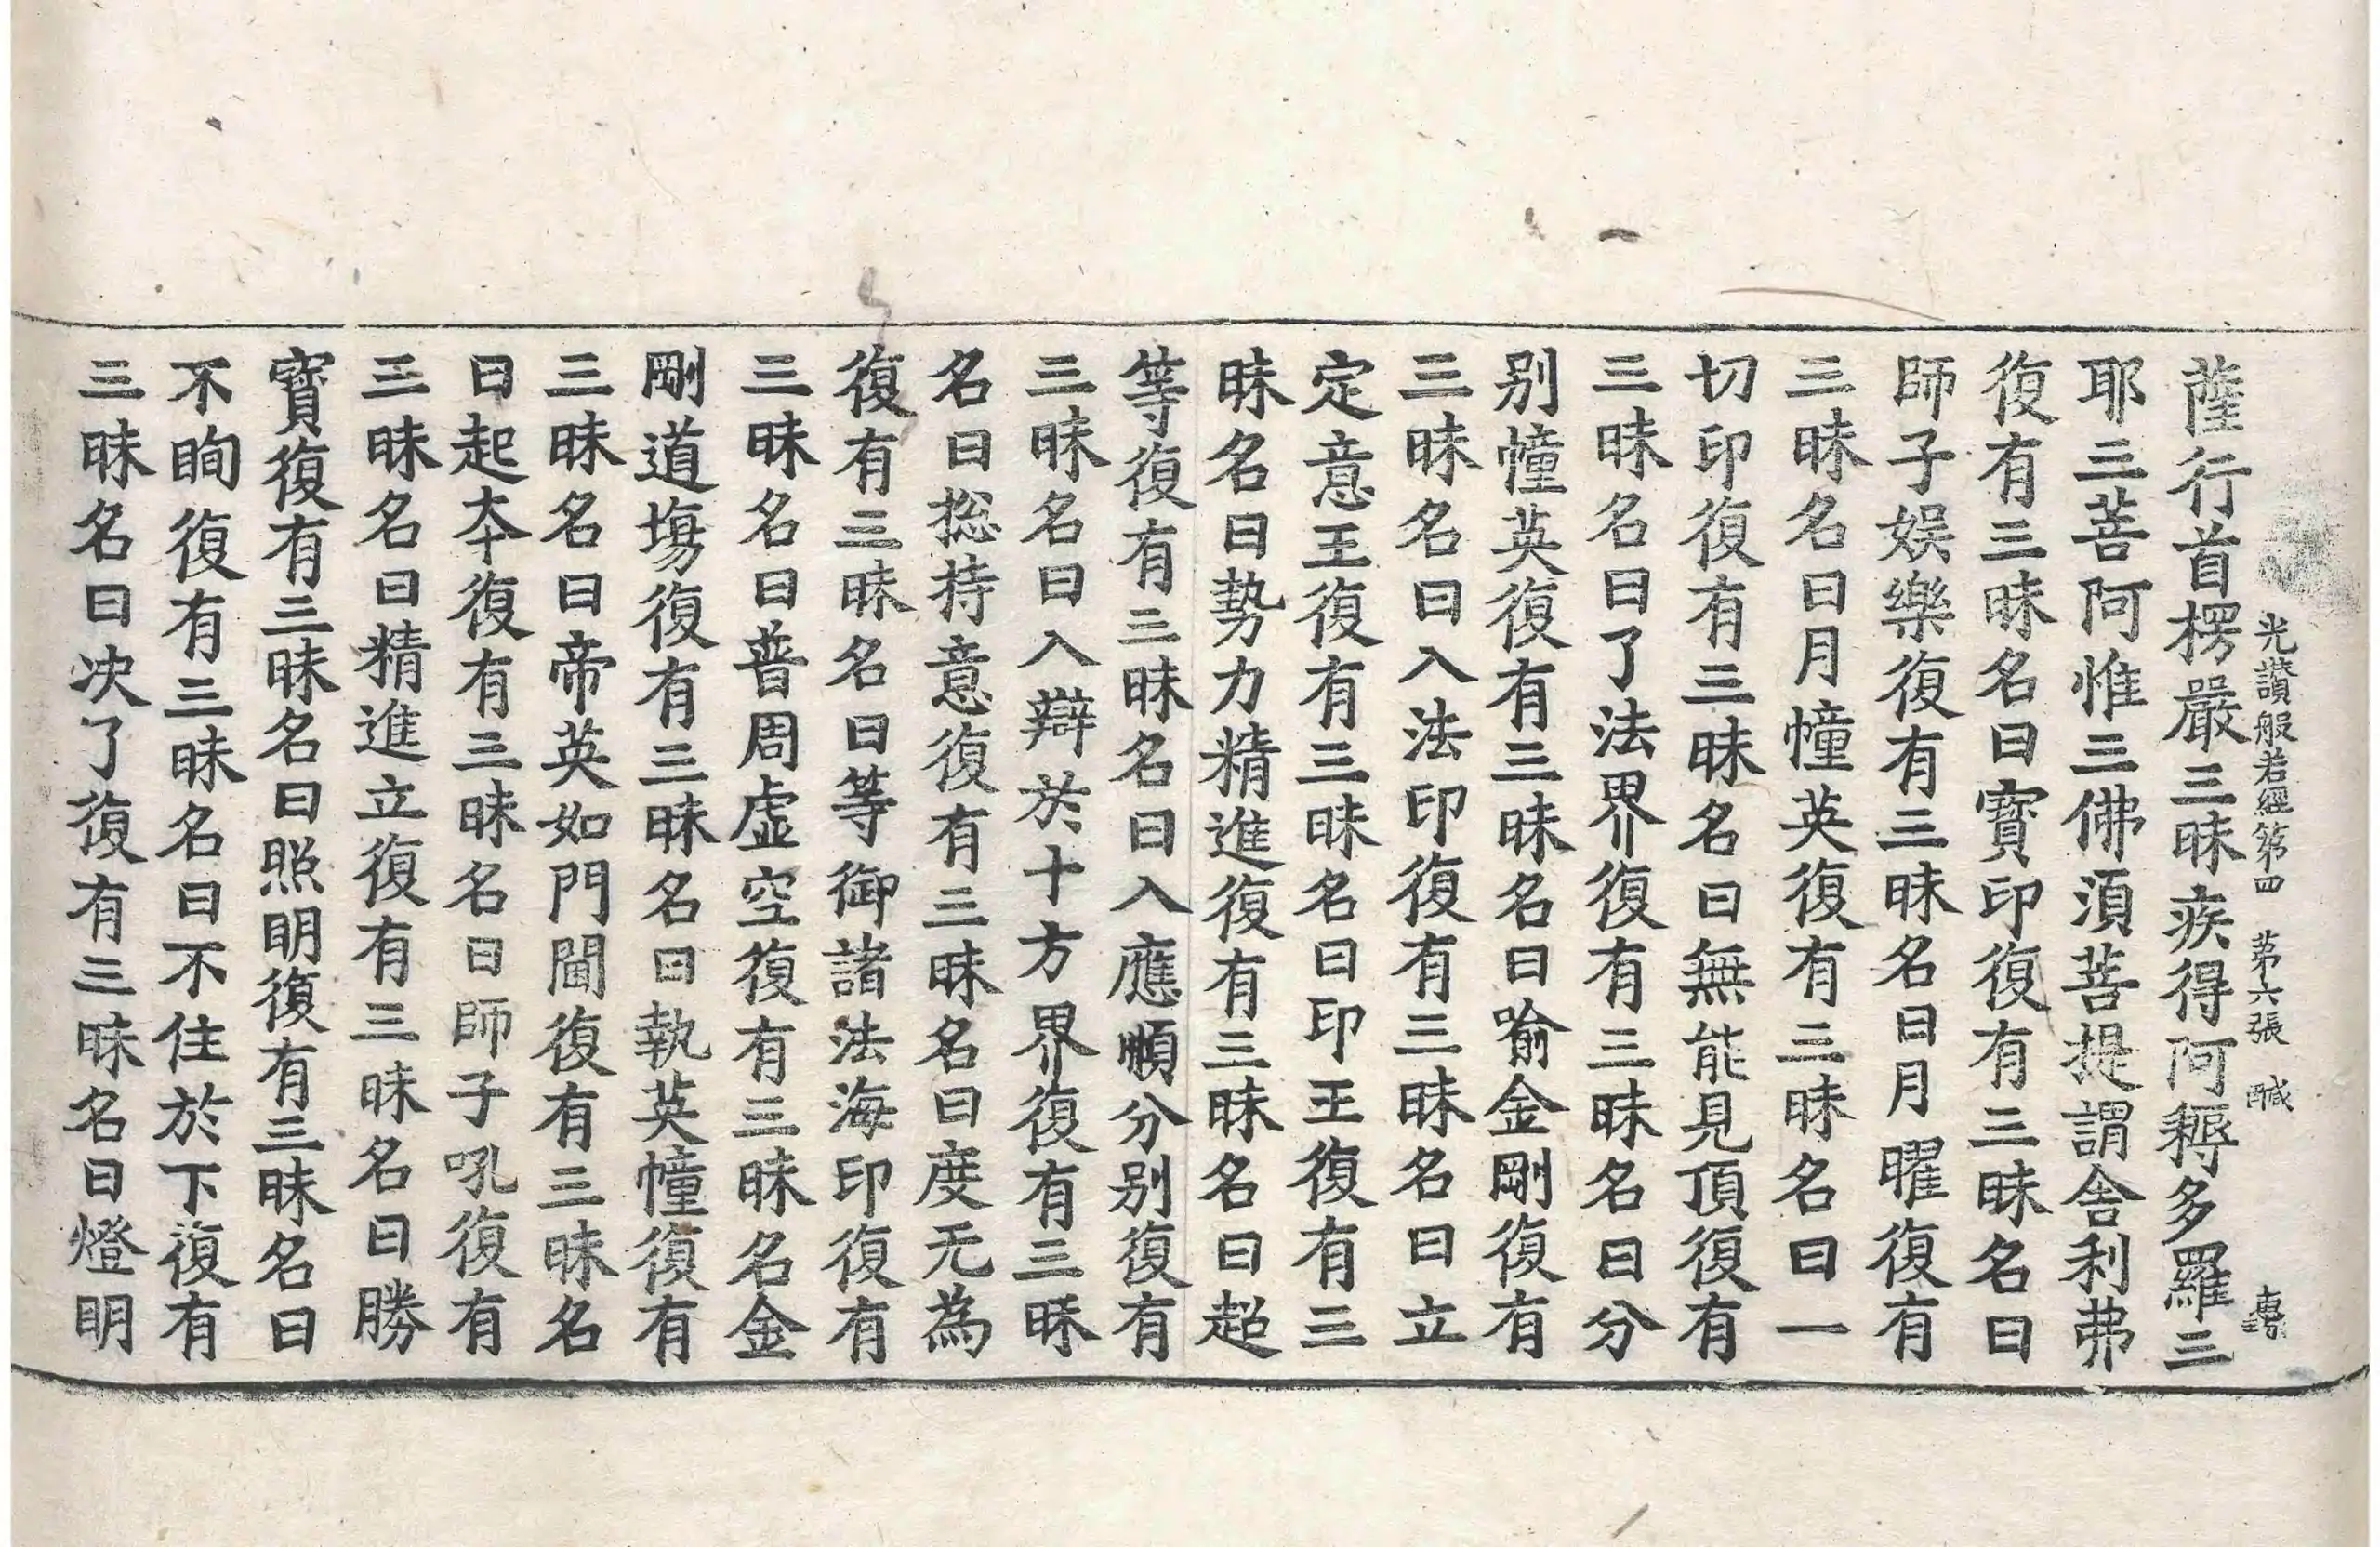 光讚般若經第四 第六張 醎
薩行首楞嚴三昧疾得阿耨多羅三
耶三菩阿惟三佛湏菩提謂舍利弗
復有三昧名曰寳印復有三昧名曰
師子娱樂復有三昧名曰月曜復有
三昧名曰月幢英復有三昧名曰一
切印復有三昧名曰無能見頂復有
三昧名曰了法界復有三昧名曰分
别幢英復有三昧名曰喻金剛復有
三昧名曰入法印復有三昧名曰立
定意王復有三昧名曰印王復有三
昧名曰勢力精進復有三昧名曰超
等復有三昧名曰入應順分别復有
三昧名曰入辯於十方界復有三昧
名曰捴持意復有三昧名曰度无為
復有三昧名曰等御諸法海印復有
三昧名曰普周虛空復有三昧名金
剛道塲復有三昧名曰執英幢復有
三昧名曰帝英如門閫復有三昧名
曰起夲復有三昧名曰師子吼復有
三昧名曰精進立復有三昧名曰勝
寳復有三昧名曰照明復有三昧名曰
不眴復有三昧名曰不住於下復有
三昧名曰决了復有三昧名曰燈明